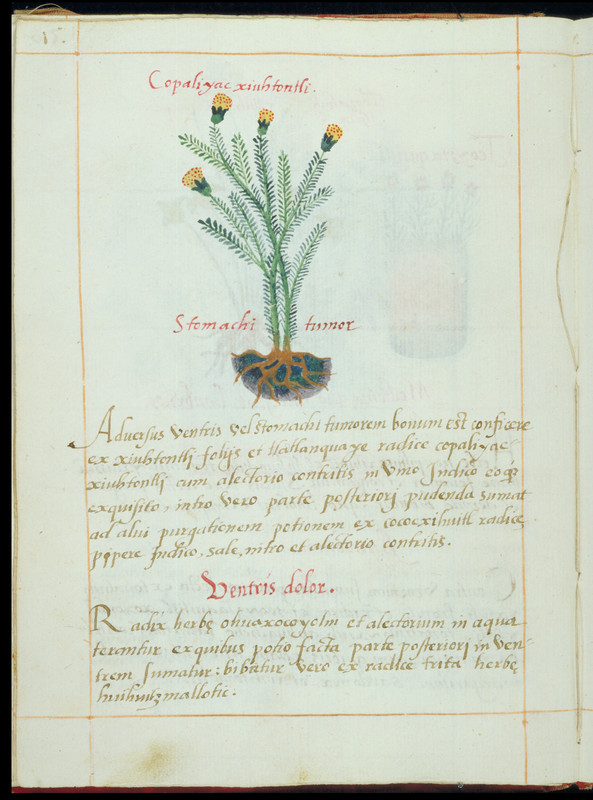 Copaliyac xiuhtontli.
Stomachi tumor
Adversus ventris vel stomachi tumorem bonum est conficere
ex xiuhtontli folijs et tlatlanquaye radice copaliyac-
xiuhtontli cum alectorio contritis in vino Indico eoq;
exquisito, intro vero parte posteriori pudenda sumat
ad alvi purgationem potionem ex cocoxihuitl radice,
pipere Indico, sale, nitro et alectorio contritis.
Ventris dolor.
Radix herbę ohuaxocoyolin et alectorium in aqua
terantur ex quibus potio facta parte posteriori in ven-
trem sumatur: bibatur vero ex radice trita herbę
huihuitzmallotic.